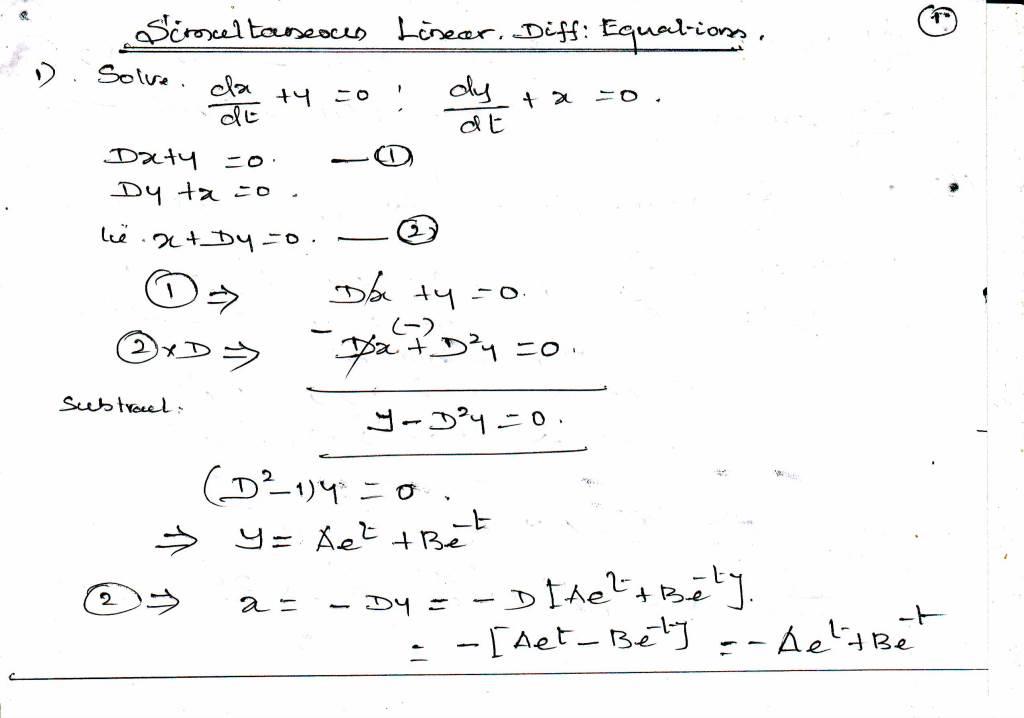 Simultaneous Linear. Diff: Equations.
1.
1). Solve. dx/dt + y = 0 ; dy/dt + x = 0.
Dx+y = 0. — ①
Dy + x = 0.
ie. x + Dy = 0. — ②
① ⇒ Dx + y = 0.
② × D ⇒ - Dx + (-) D²y = 0.
Subtract:
y - D²y = 0.
(D²-1)y = 0.
⇒ y = Ae^t + Be^-t
② ⇒ x = - Dy = - D[Ae^t + Be^-t].
= - [Ae^t - Be^-t] = - Ae^t + Be^-t